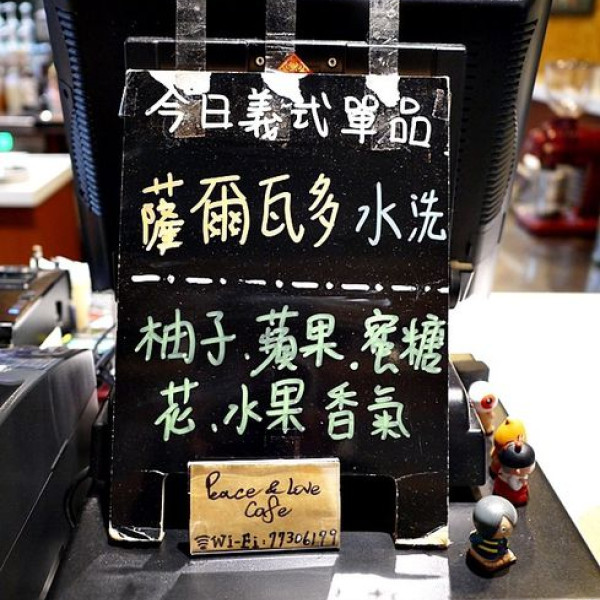 今日義式單品
薩爾瓦多水洗
柚子、蘋果、蜜糖
花、水果香氣
Peace & Love
Cafe
Wi-Fi:77306199